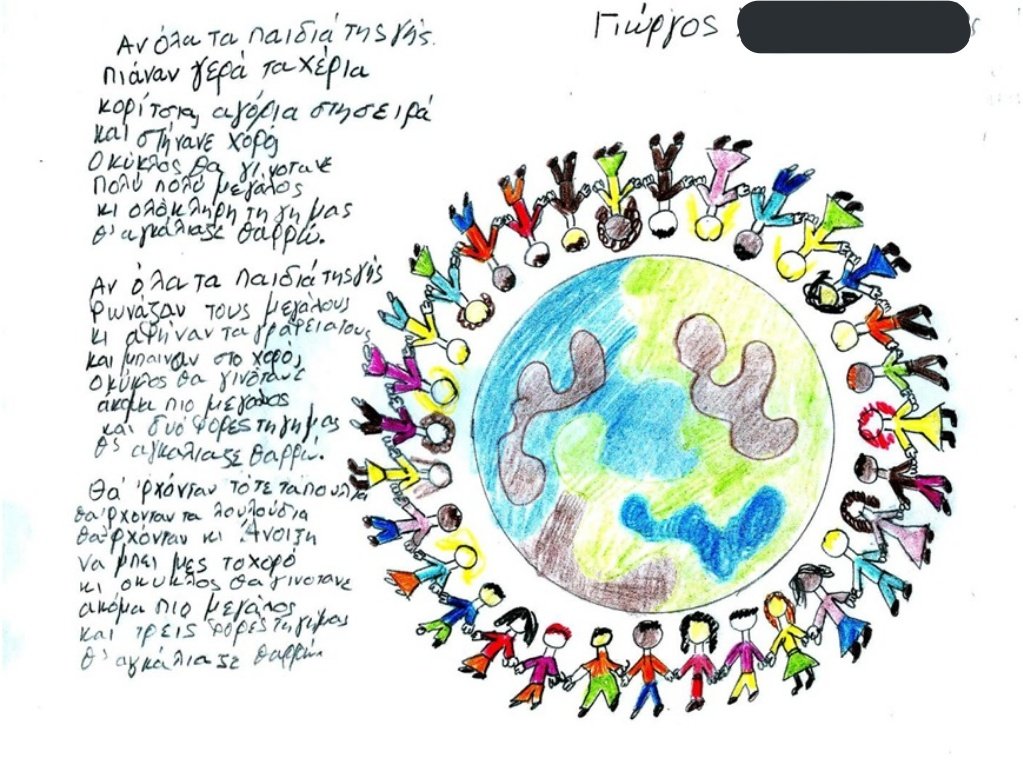 Γιώργος
Αν όλα τα παιδιά της γής
πιάναν γερά τα χέρια
κορίτσια, αγόρια στη σειρά
και στήνανε χορό,
Ο κύκλος θα γινότανε
πολύ πολύ μεγάλος
κι ολόκληρη τη γη μας
θ' αγκάλιαζε θαρρώ.
Αν όλα τα παιδιά της γής
φωνάζαν τους μεγάλους
κι αφήναν τα γραφεία τους
και μπαίναν στο χορό,
ο κύκλος θα γινότανε
ακόμα πιο μεγάλος
και δυό φορές τη γη μας
θ' αγκάλιαζε θαρρώ.
Θα 'ρχόνταν τότε τα πουλιά
θα 'ρχόνταν τα λουλούδια
θα 'ρχόνταν κι Άνοιξη
να μπει μες το χορό
κι ο κύκλος θα γινότανε
ακόμα πιο μεγάλος
και τρεις φορές τη γη μας
θ' αγκάλιαζε θαρρώ